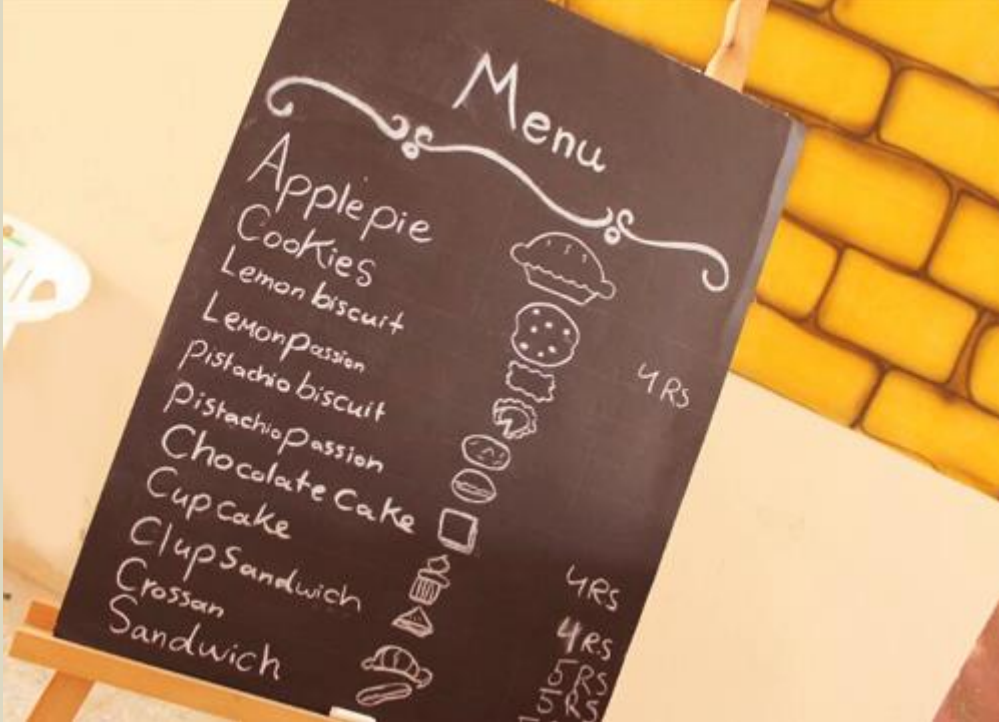 Menu
Apple pie
Cookies
Lemon biscuit
Lemon passion
4 RS
Pistachio biscuit
Pistachio passion
Chocolate Cake
Cup cake
Clup Sandwich
4 RS
Crossan
4 RS
Sandwich
5 RS
5 RS